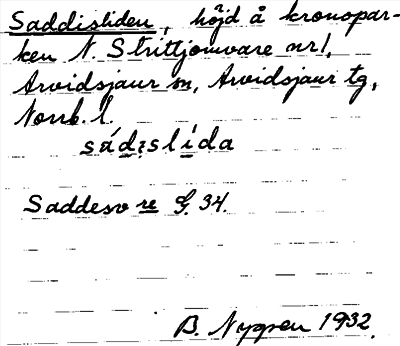 Saddisliden, höjd å kronopar-
ken N. Strittjomvare nr 1,
Arvidsjaur sn, Arvidsjaur tg,
Norrb. l.
sádislída
Saddesvare G. 34.
B. Nygren 1932.